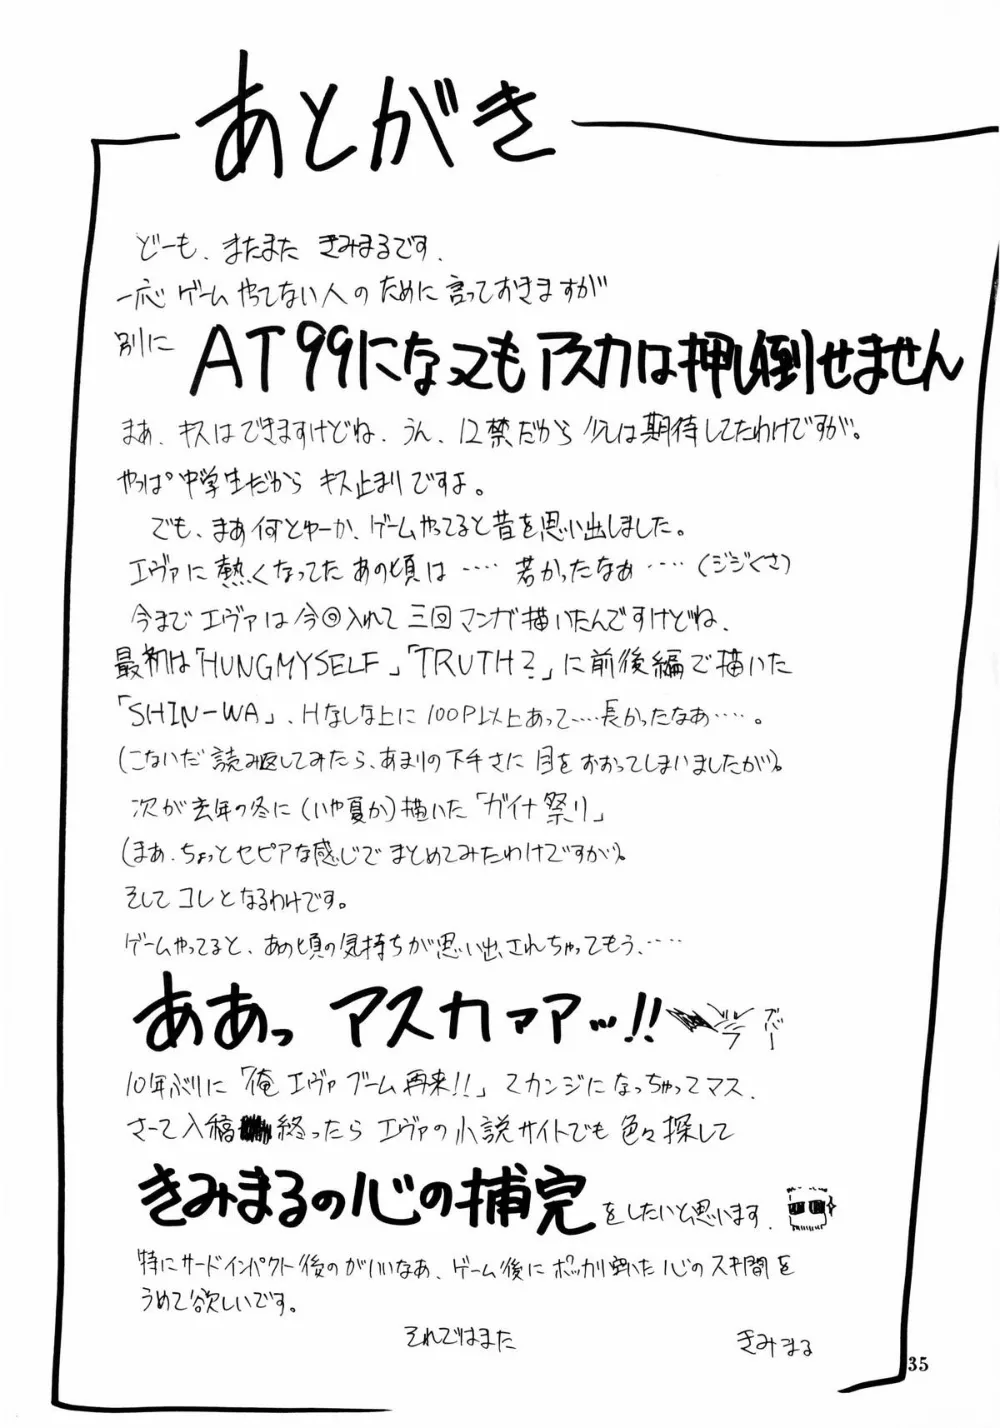 あとがき
どーも、またまた きみまるです.
一応 ゲーム やってない人の ために 言っておきますが
別に AT99になってもアスカは押し倒せません
まあ、キスはできますけどね、うん、12禁だから 少しは期待してたわけですが。
やっぱ中学生だから キス止まりですよ。
でも、まあ何とゆーか、ゲームやってると昔を思い出しました。
エヴァに熱くなってた あの頃は ‥‥ 若かったなぁ‥‥(ジジくさ)
今まで エヴァは今回入れて 三回マンガ描いたんですけどね、
最初は「HUNGMYSELF」「TRUTH?」に前後編で描いた
「SHIN-WA」、Hなしな上に 100P以上あって‥‥長かったなあ‥‥。
(こないだ 読み返してみたら、あまりの下手さに 目をおおってしまいましたが)。
次が去年の冬に(いや夏か)描いた「ガイナ祭り」
(まあ、ちょっとセピアな感じで まとめてみたわけですが)。
そして コレとなるわけです。
ゲームやってると、あの頃の気持ちが思い出されちゃってもう、‥‥
ああっ アスカァア…!!
10年ぶりに「俺 エヴァ ブーム再来!!」てカンジになっちゃってマス.
さーて入稿 終ったら エヴァの小説サイトでも 色々探して
きみまるの心の補完をしたいと思います.
特にサードインパクト後のがいいなあ、ゲーム後に ポッカリ空いた 心のスキ間を
うめて欲しいです。
それではまた
きみまる
35